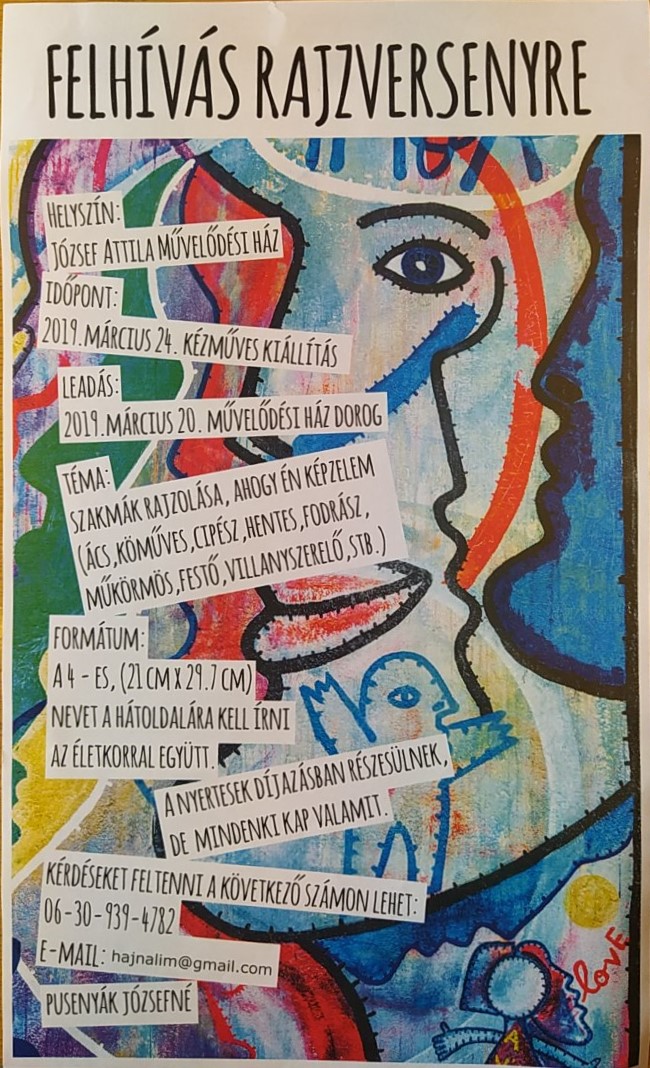 FELHÍVÁS RAJZVERSENYRE
HELYSZÍN:
JÓZSEF ATTILA MŰVELŐDÉSI HÁZ
IDŐPONT:
2019.MÁRCIUS 24. KÉZMŰVES KIÁLLÍTÁS
LEADÁS:
2019.MÁRCIUS 20. MŰVELŐDÉSI HÁZ DOROG
TÉMA:
SZAKMÁK RAJZOLÁSA, AHOGY ÉN KÉPZELEM
(ÁCS,KÖMŰVES,CIPÉSZ,HENTES,FODRÁSZ,
MŰKÖRMÖS,FESTŐ,VILLANYSZERELŐ,STB.)
FORMÁTUM:
A4 - ES, (21 CM X 29.7 CM)
NEVET A HÁTOLDALÁRA KELL ÍRNI
AZ ÉLETKORRAL EGYÜTT.
A NYERTESEK DÍJAZÁSBAN RÉSZESÜLNEK,
DE MINDENKI KAP VALAMIT.
KÉRDÉSEKET FELTENNI A KÖVETKEZŐ SZÁMON LEHET:
06-30-939-4782
E-MAIL: hajnalim@gmail.com
PUSENYÁK JÓZSEFNÉ
love